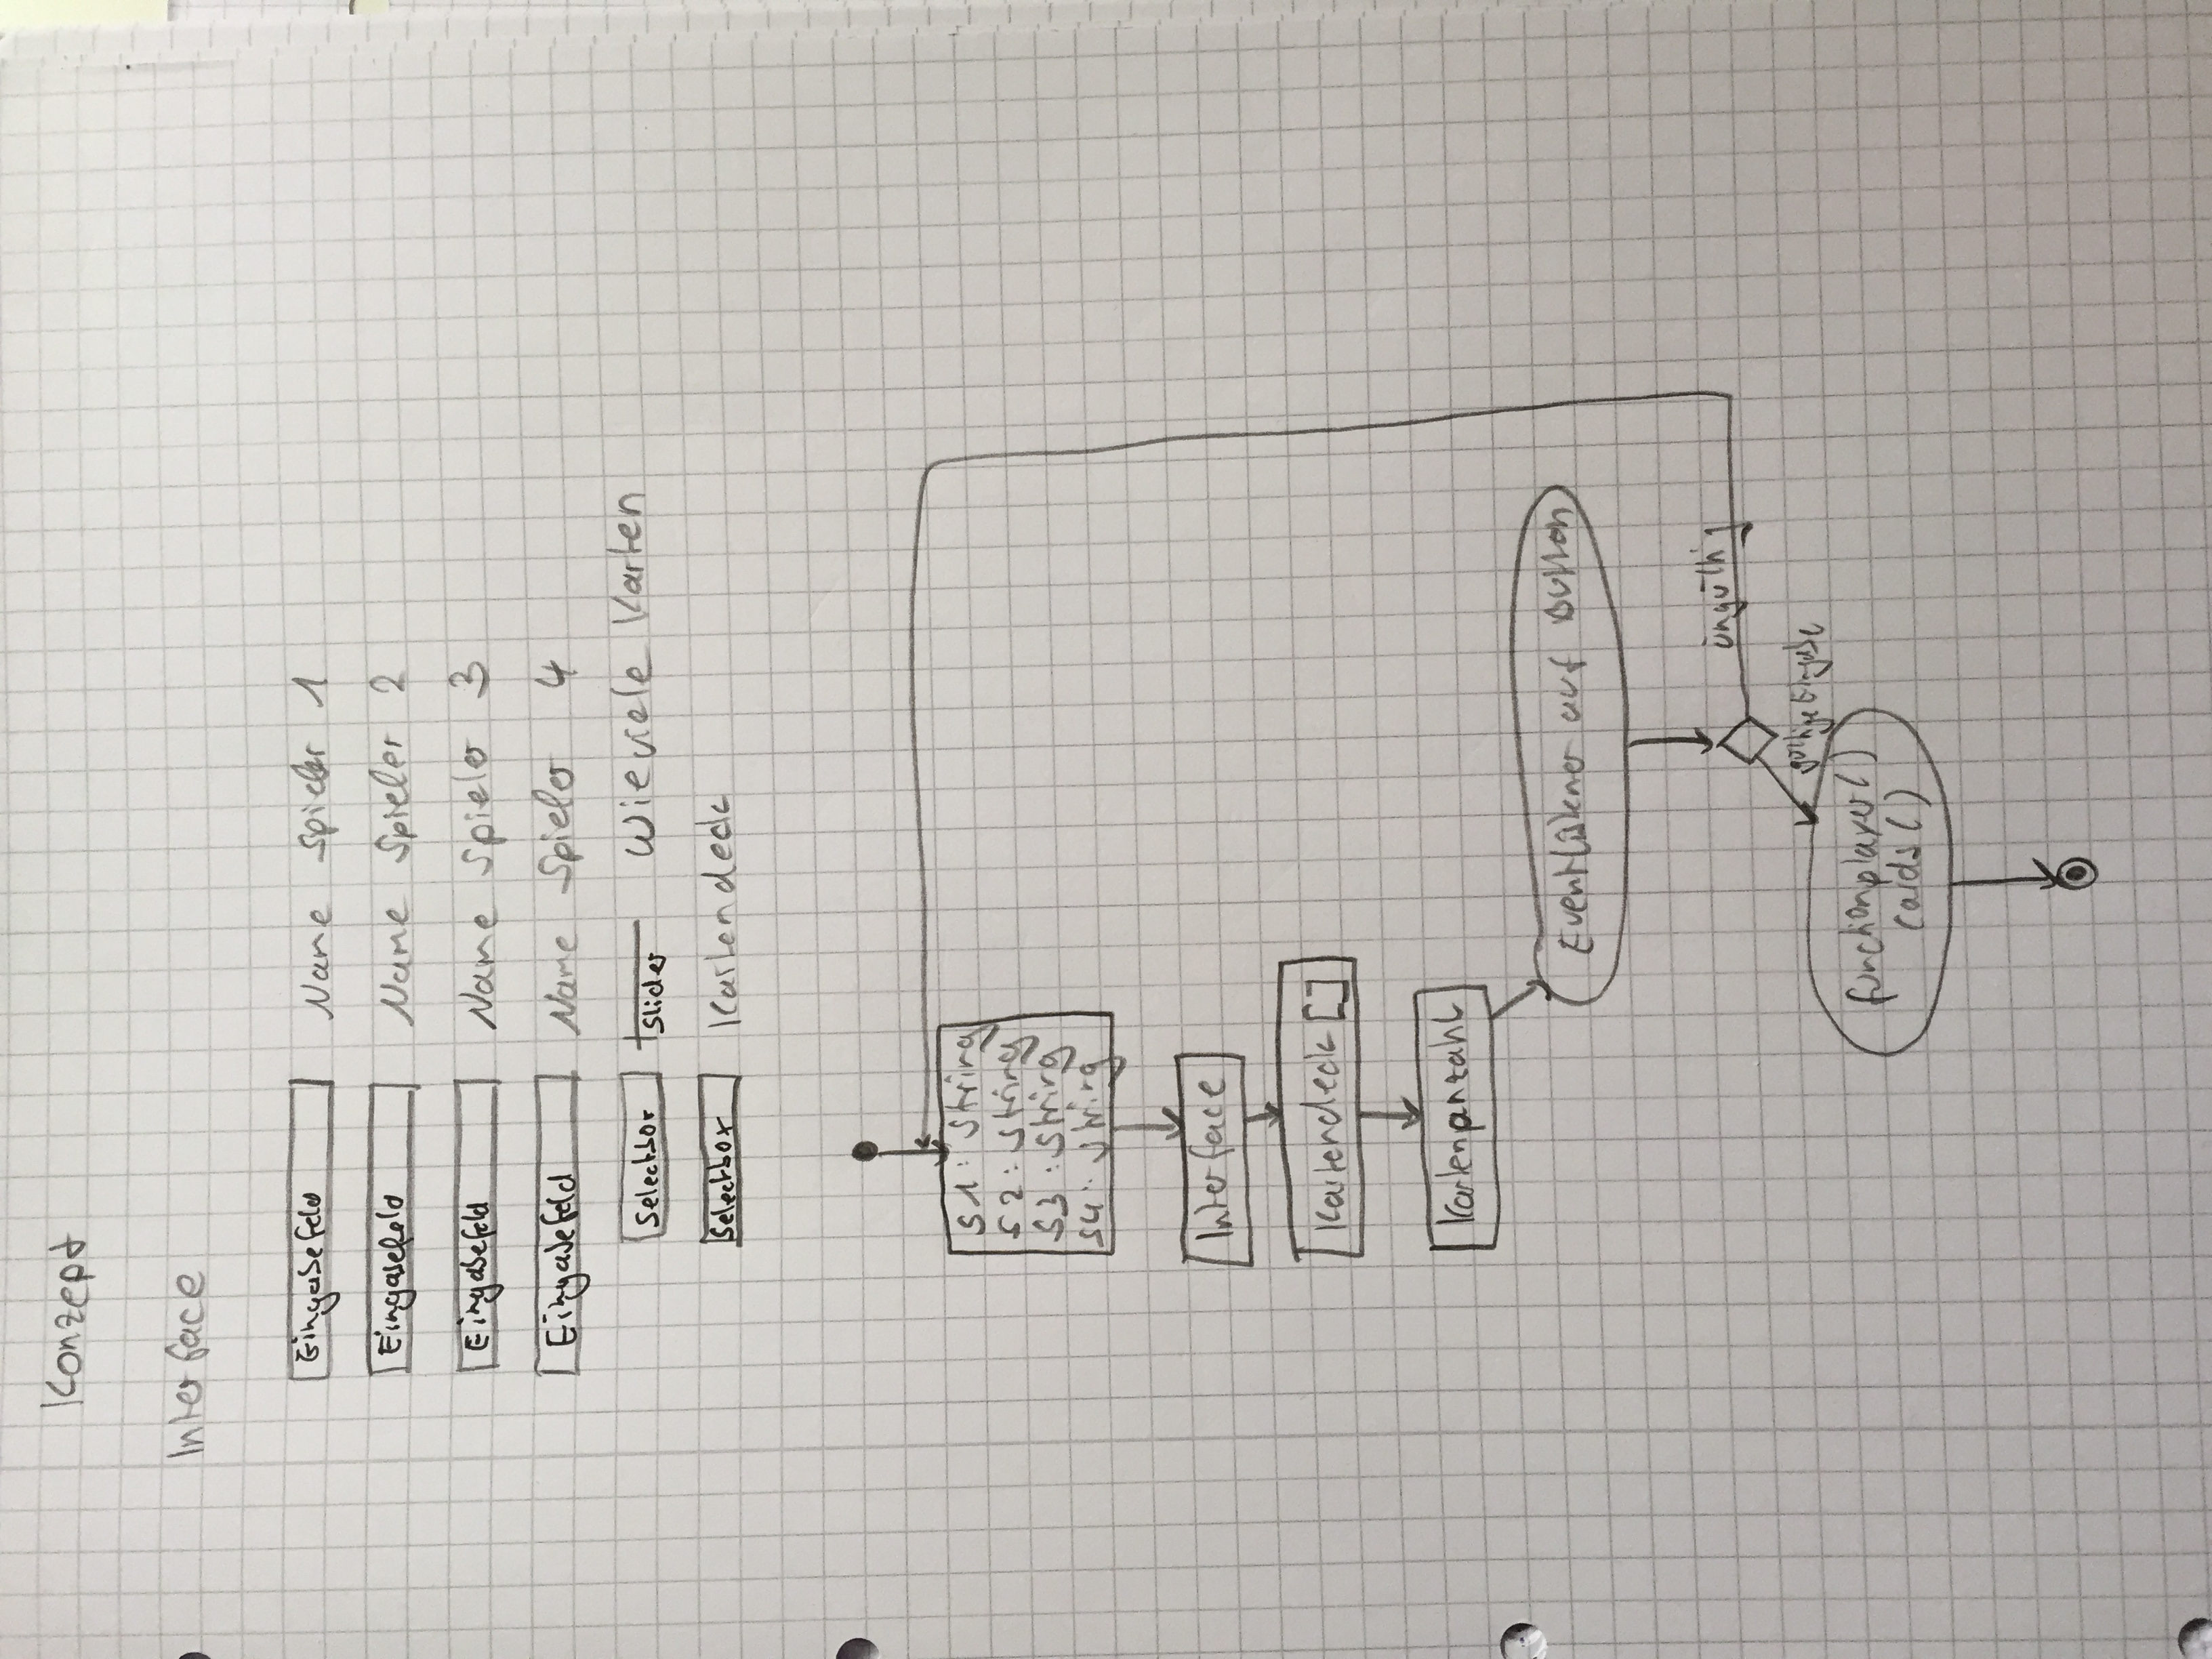 Konzept
Interface
Eingabefeld Name Spieler 1
Eingabefeld Name Spieler 2
Eingabefeld Name Spieler 3
Eingabefeld Name Spieler 4
Selectbox Slider Wieviele Karten
Selectbox Kartendeck
S1: String
S2: String
S3: String
S4: String
Interface
Kartendeck []
Kartenanzahl
Eventlistener auf Button
ungültig
gültige Eingabe
functionplayer()
cards()